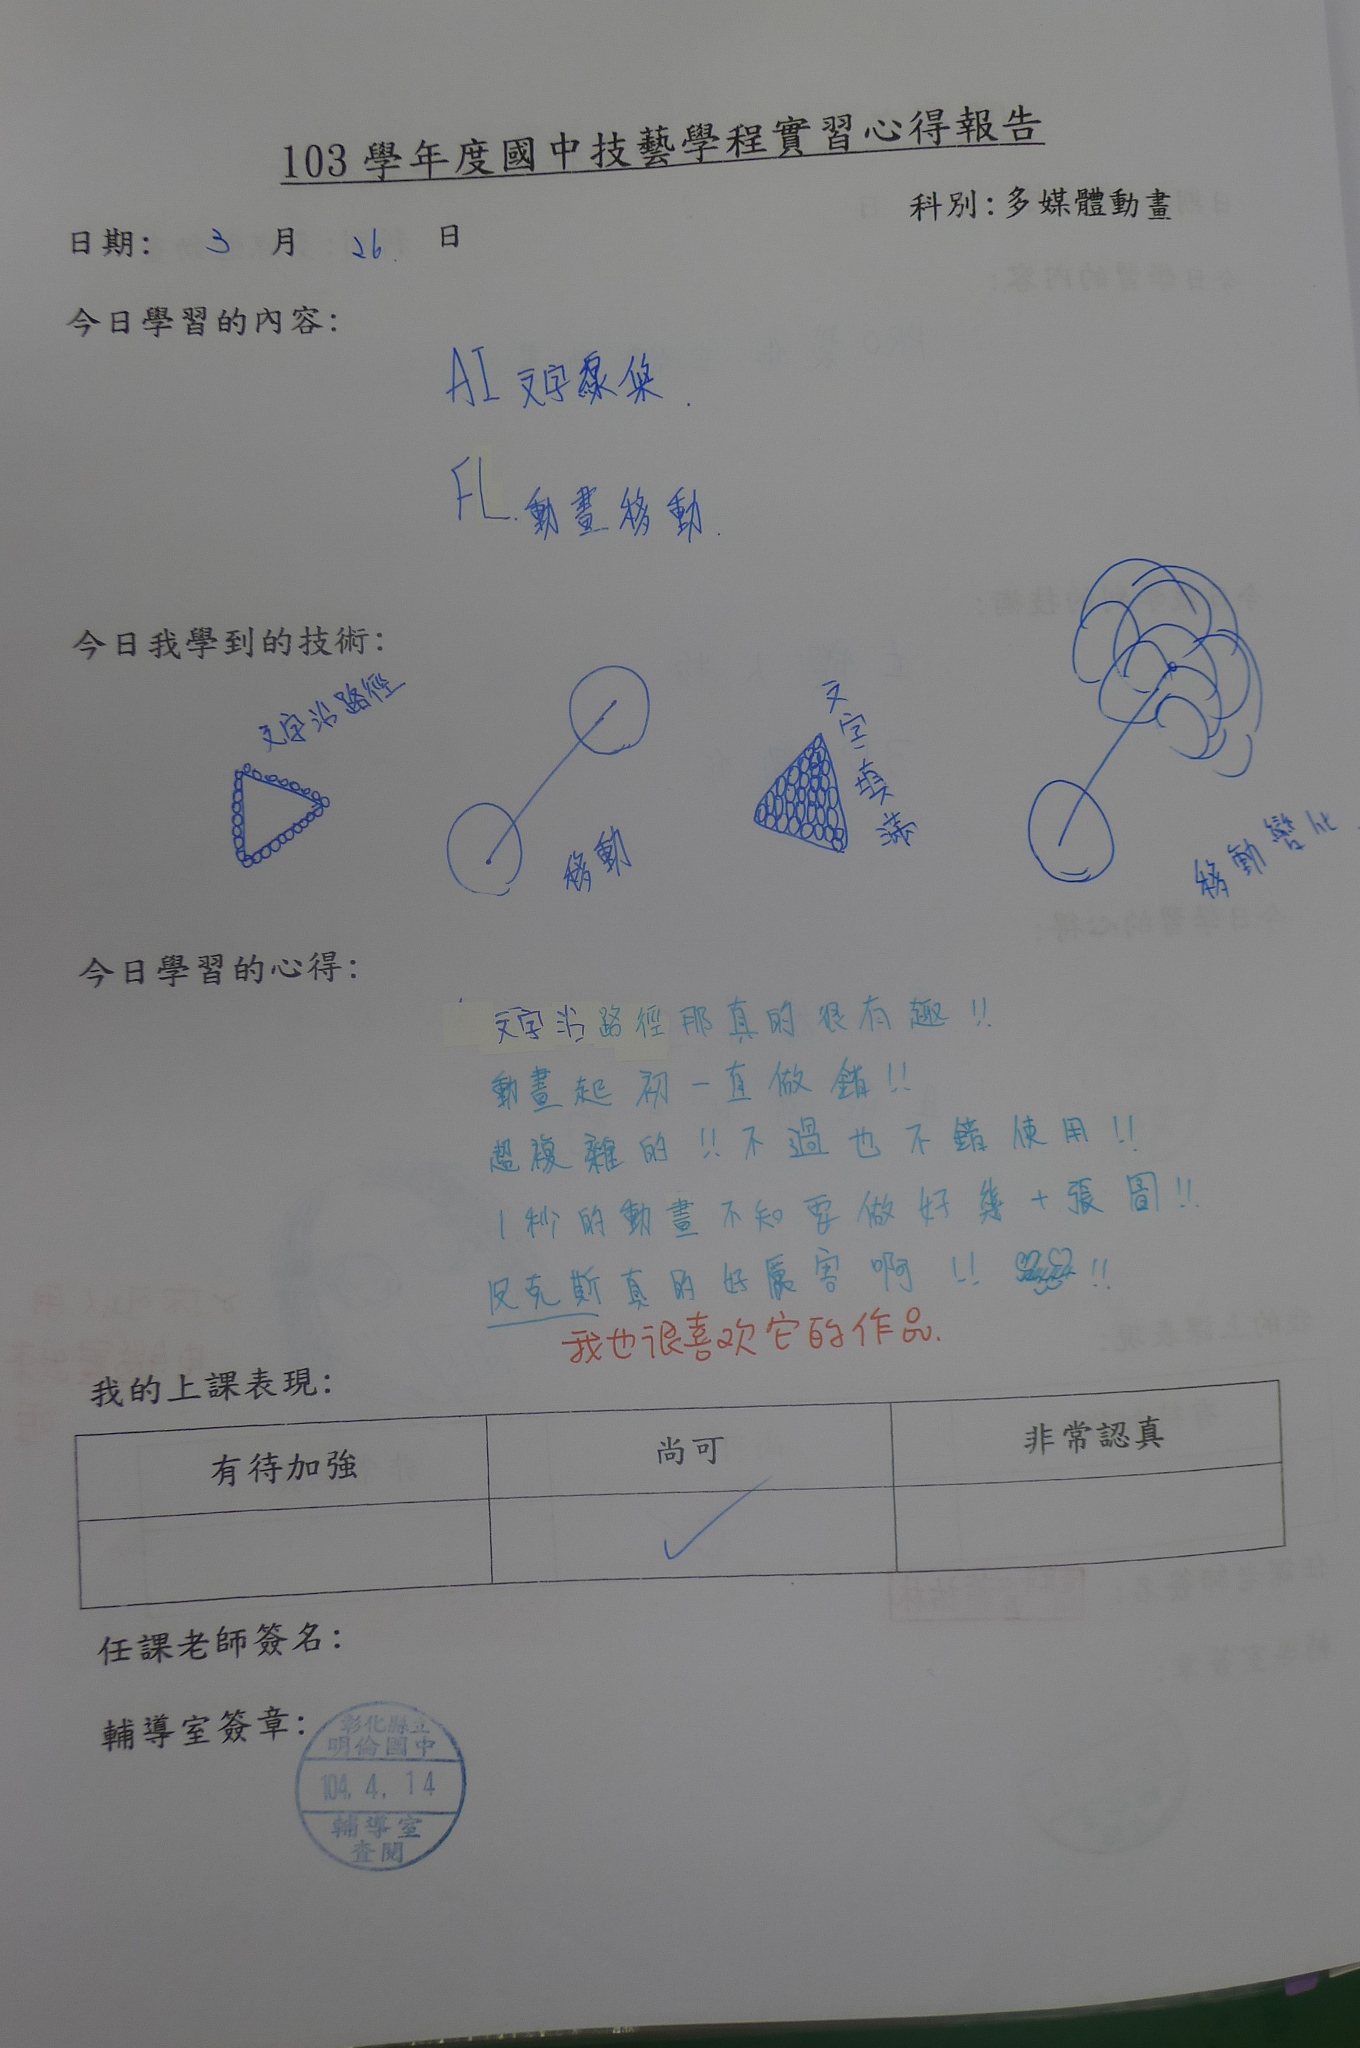 103 學年度國中技藝學程實習心得報告
科別：多媒體動畫
日期： 3 月 26. 日
今日學習的內容：
AI 文字
FL. 動畫移動.
今日我學到的技術：
文字沿路徑
移動
文字填滿
移動彎
今日學習的心得：
文字沿路徑那真的很有趣!!
動畫起初一直做錯!!
超複雜的!!不過也不錯使用!!
1秒的動畫不知要做好幾十張圖!!
皮克斯真的好厲害啊!! !!
我也很喜欢它的作品.
我的上課表現：
有待加強 尚可 非常認真
✓
任課老師簽名：
輔導室簽章：
彰化縣立
明倫國中
104. 4. 14
輔導室
查閱